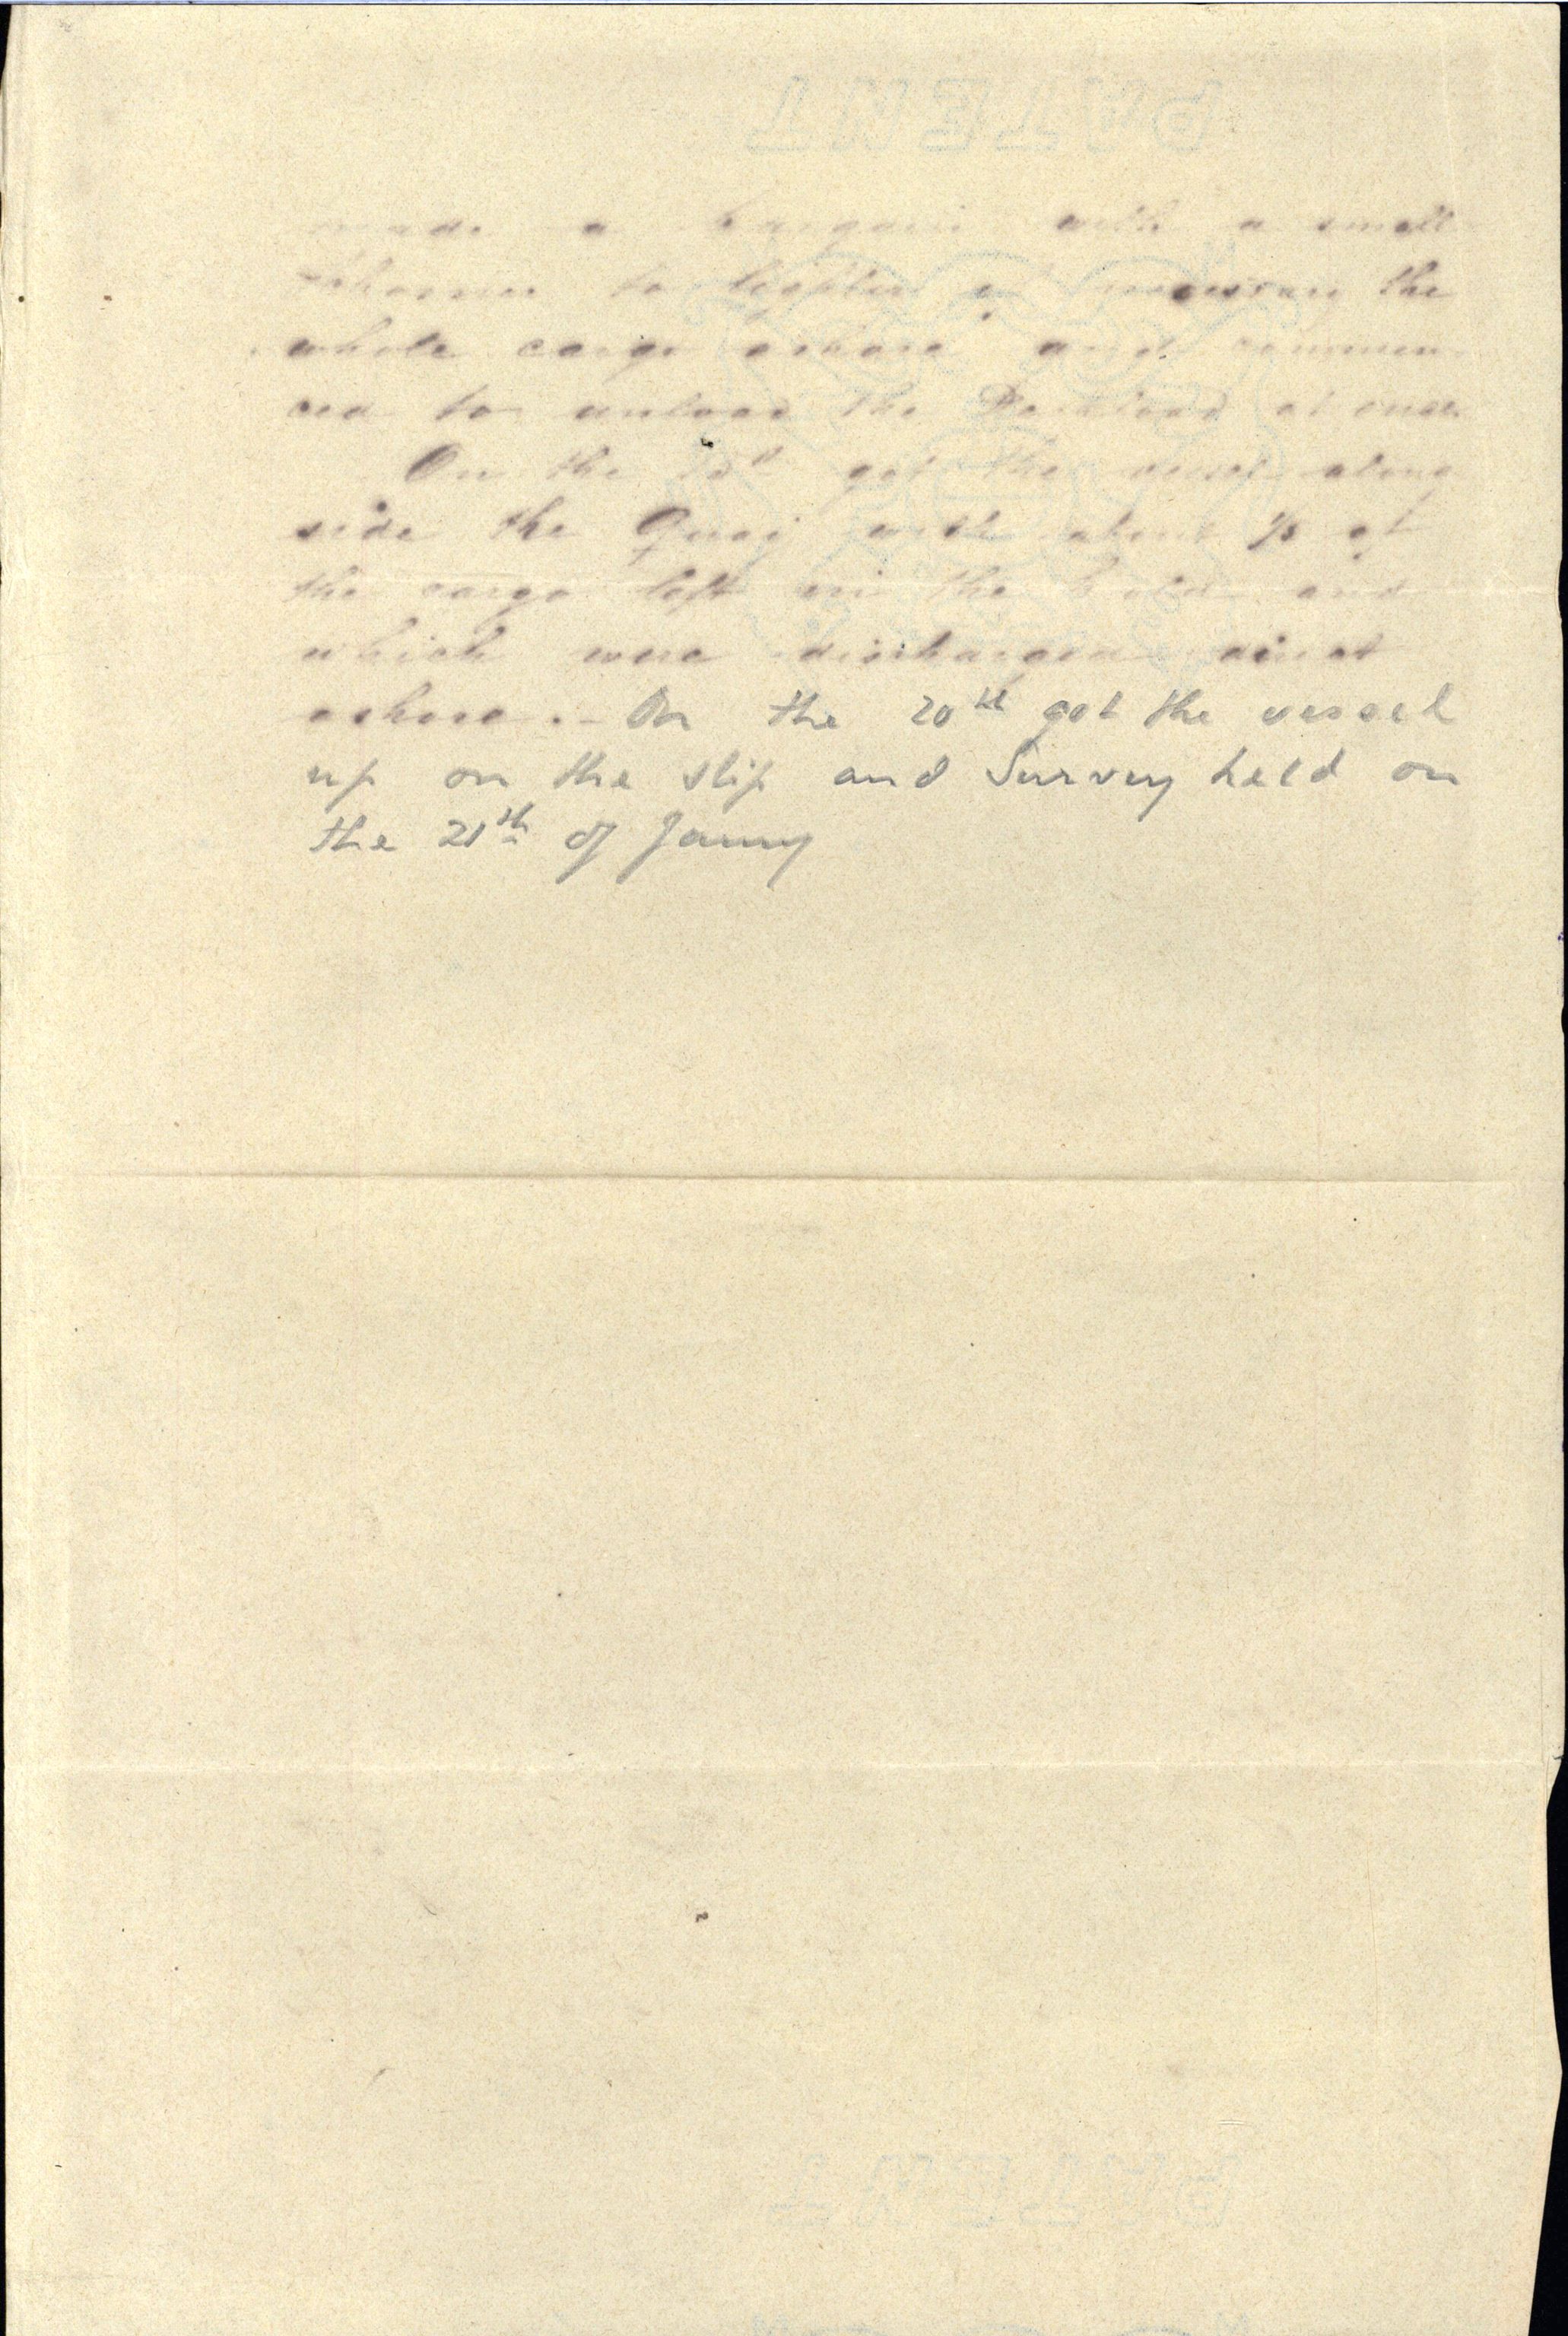 PATENT
made a bargain with a small
to lighter if necessary the
whole cargo ashore and commen
ced to unload the Deckload at once.
On the got the vessel along
side the Quai with about 1/3 of
the cargo left in the hold and
which were discharged direct
ashore. - On the 20th got the vessel
up on the slip and Survey held on
the 21th of Janny
PATENT